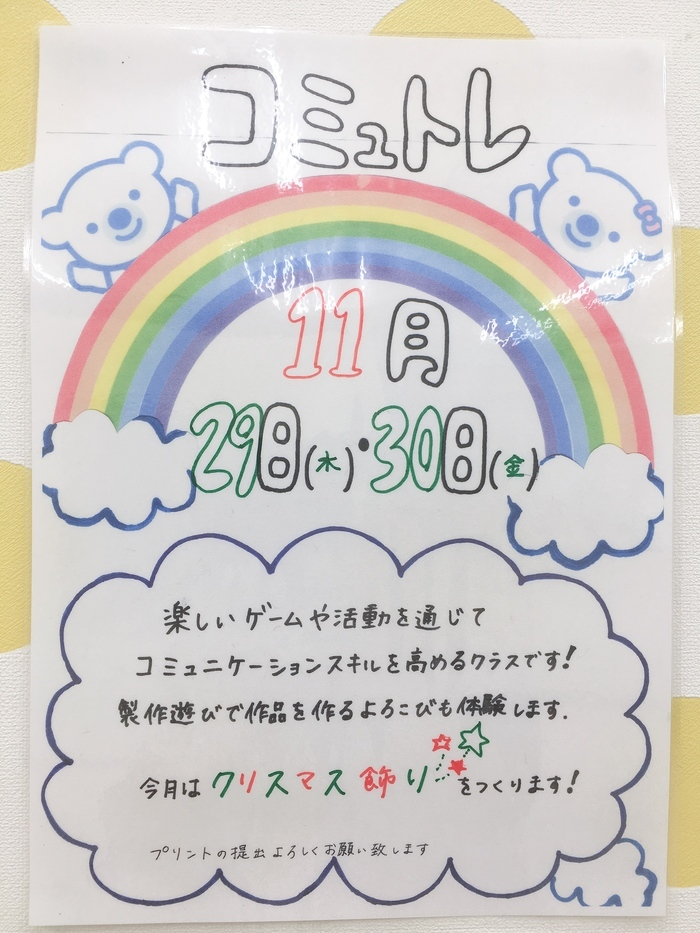 コミュトレ
11月
29日(木)・30日(金)
楽しいゲームや活動を通じて
コミュニケーションスキルを高めるクラスです!
製作遊びで作品を作るよろこびも体験します.
今月はクリスマス飾りをつくります!
プリントの提出よろしくお願い致します